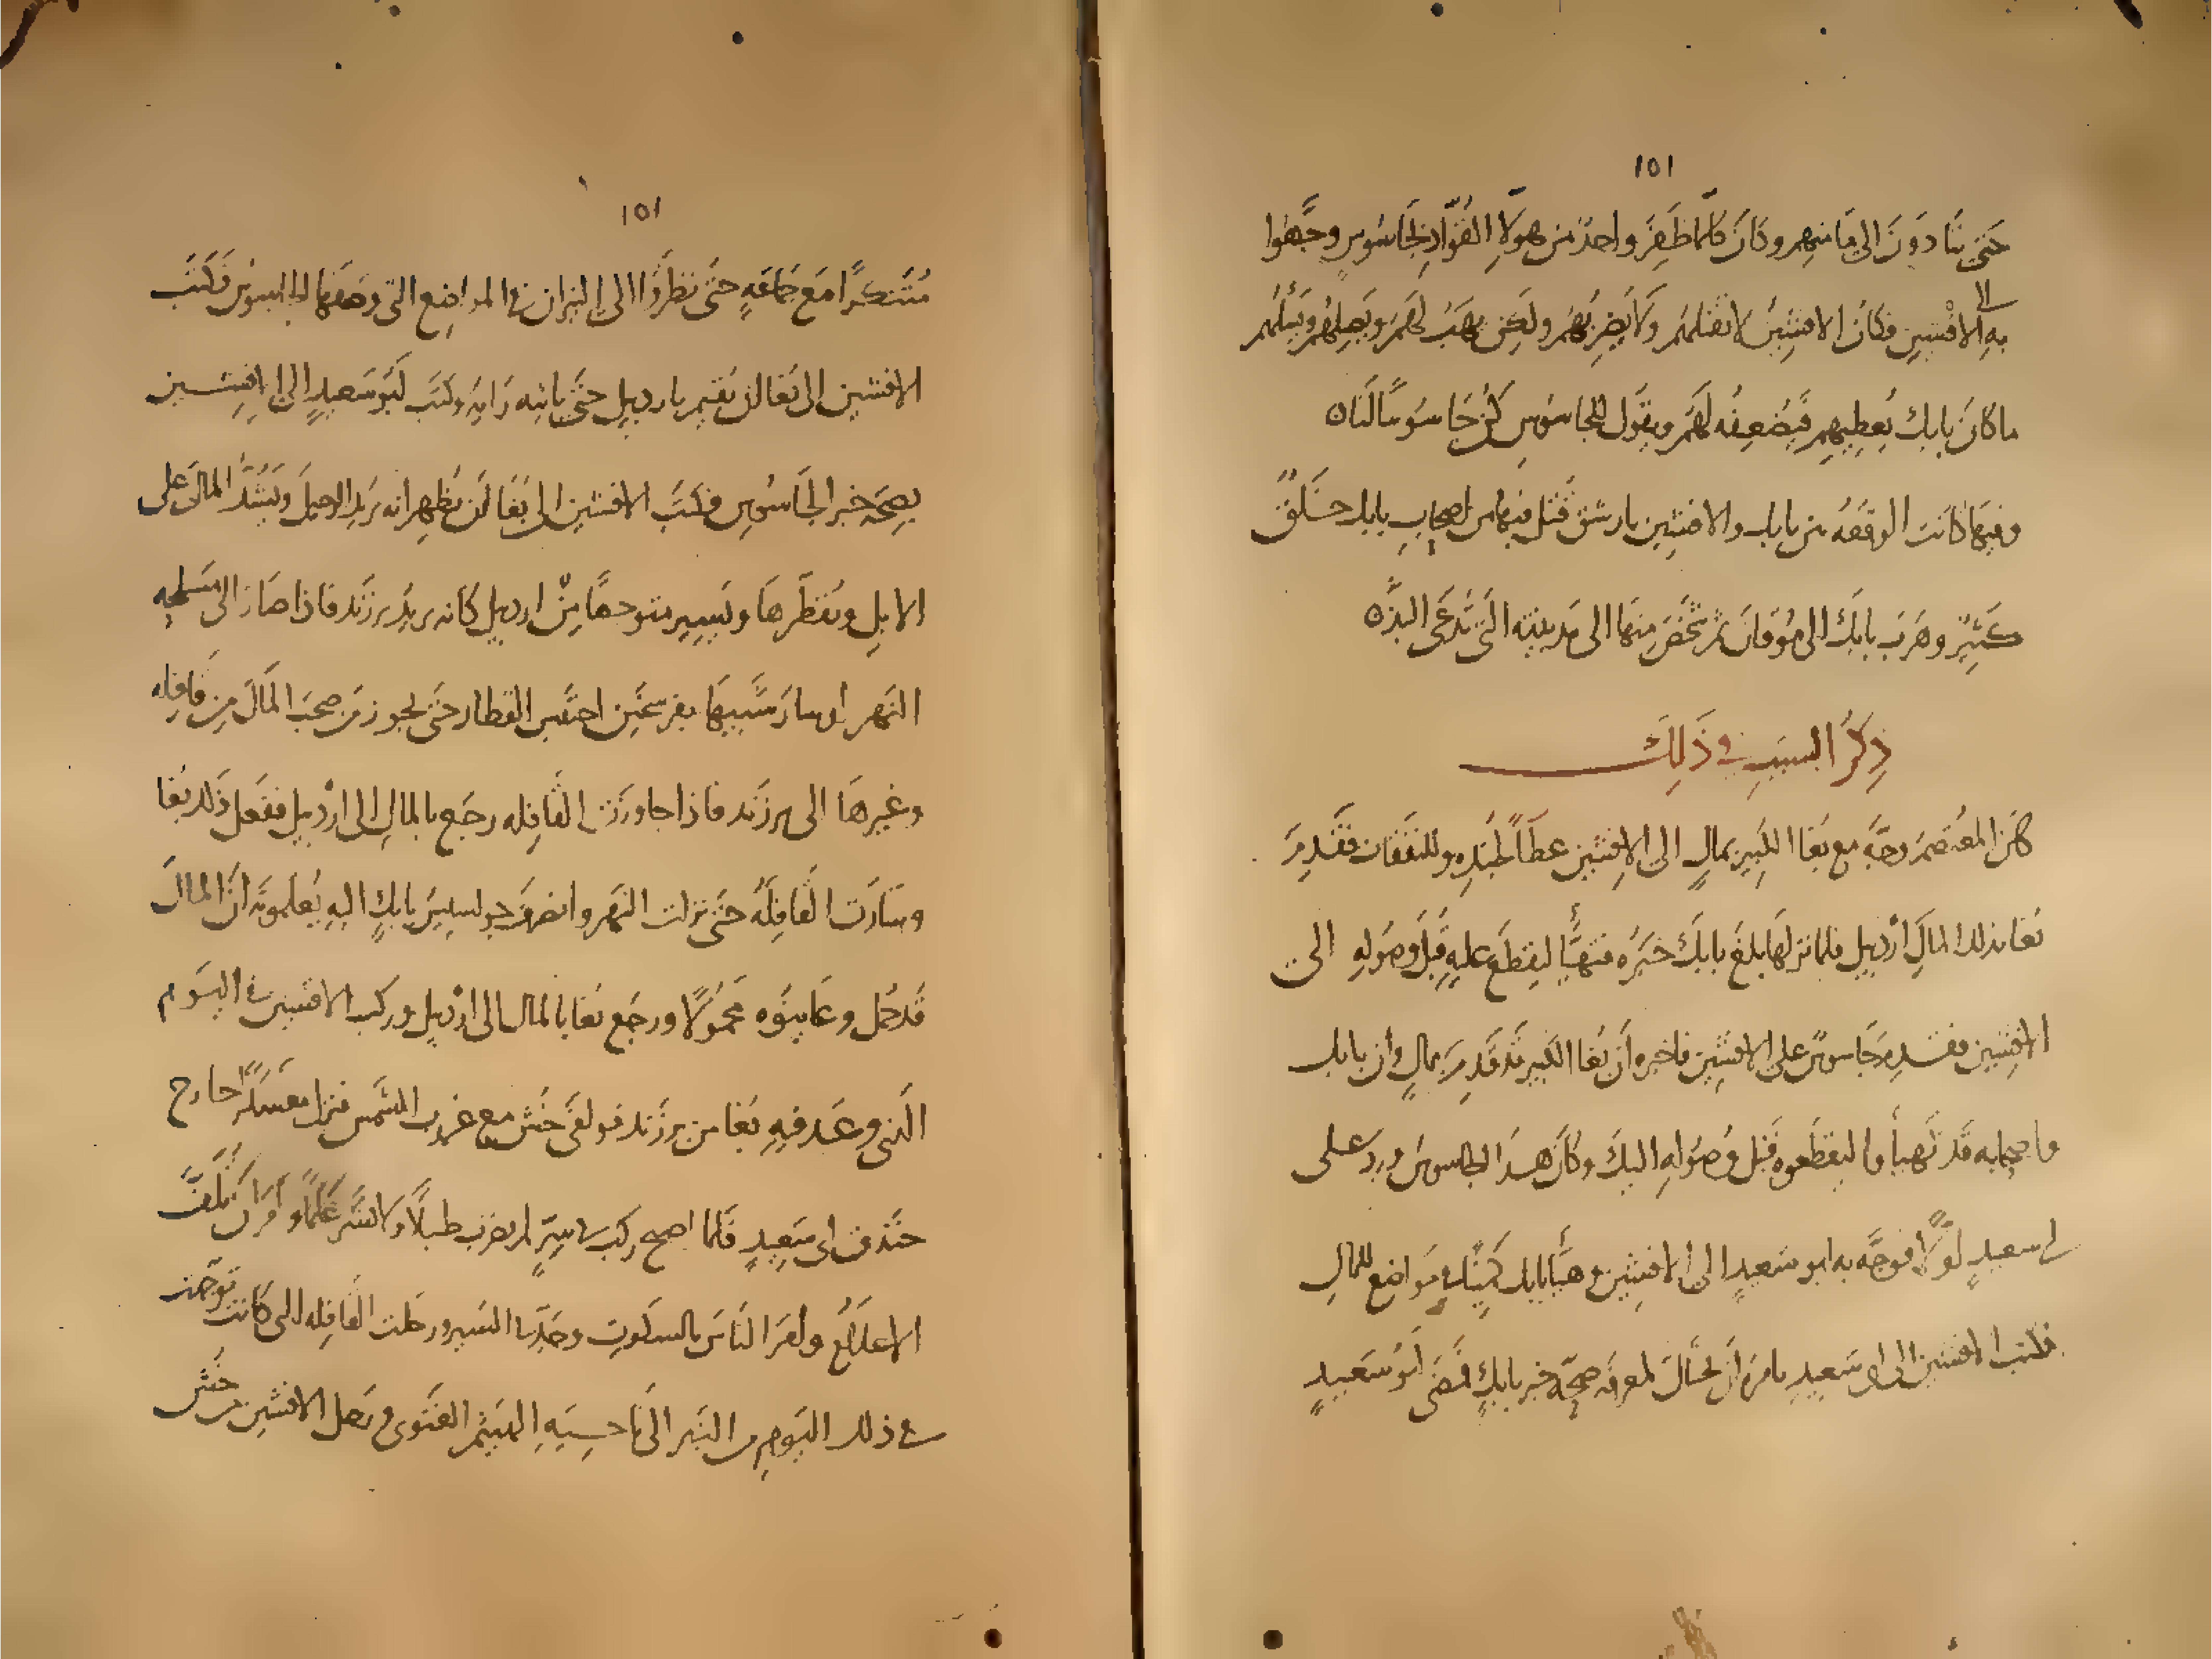 ١٥١
حَتَّى يَتَأدّونَ الى مَأمنِهم وكانَ كلّما ظَفِرَ واحدٌ من هَولآِ القُوّادِ بجَاسُوسٍ وجَّهُوا
به الى الافشين فكان الافشينُ لا يقتلهم ولا يَضربُهُم ولكن يَهَبُ لَهُم ويَصِلُهم ويَسْلُهم
ما كانَ بابك يُعطِيهم فيُضعِفُه لَهُم ويقول للجاسُوس كُن جَاسُوسًا لَنَا ه
وفيهَا كانت الوقعَه بين بابك والافشين بارشق قُتل فيها من اصحابِ بابك خَلقٌ
كَثيرٌ وهَربَ بابَك الى مُوقانَ ثم شَخَصَ مِنهَا الى مَدينته الَتى تُدعَى البَذّ ه
ذِكرُ السببِ فى ذَلِكَ
كانَ المعُتصم وجّه مع بُغا الكبير بمالٍ الى الافشين عطآً لجُندِه وللنفقات فقَدِمَ
بُغا بذلك المالِ ارْدبيل فلما نزلهَا بلغَ بابَكَ خبَرُه فتهيَّأ ليقطَع عليهِ قَبلَ وصُولهِ الى
الافشين فقَدِم جَاسوسٌ على الافشين فاخبره أنّ بُغا الكبير قَد قَدِمَ بمالٍ وأن بابك
واصحابه قَد تَهيأوا ليقطَعوه قَبل وُصُولهِ اليكَ وكانَ هَذا الجاسوسُ ورد على
ابى سعيدٍ أوَّلًا فوجَّه به ابو سَعيدٍ الى الافشين وهَيَّأ بابك كمينًا فى مَواضع للمالِ
فكتبَ الافشين الى ابى سَعيدٍ يامرهُ أن يحتالَ لمعرفه صحّة خبر بابكٍ فمَضَى ابُو سَعيدٍ
١٥١
مُتَنكرًا مَع جَماعَهٍ حتّى نظرُوا الى النيران فى المواضِع التى وصَفَها الجاسوسُ فكَتَبَ
الافشين الى بُغا ان يُقيم باردبيل حتّى ياتيه رَايهُ وكتبَ ابو سَعيدٍ الى الافشين
بصِحّه خبر الجَاسُوس فكتَبَ الافشين الى بُغَا أن يُظهر انه يريد الرحيلَ ويَشُدَّ المالَ على
الابلِ ويُقطرهَا ويَسِير متوجهًا مِنْ اردبيل كانه يريدُ برزَند فاذا صَارَ الى مَسلحه
النَهر او سارَ شَبيهًا بفرسَخَين احتبس القطار حتى يجوز مَن صَحبَ المالَ مِن قَافِله
وغيرهَا الى برزَند فاذا جاوزَت القَافِله رجَع بالمالِ الى ارْدبيل ففعَل ذلك بُغا
وسَارَت القَافِلَهُ حتّى نزلت النَهر وانصرفَ جواسيسُ بابكٍ اليهِ يُعلمونَه أنَّ المالَ
قد حُمل وعَاينُوه محمُولًا ورجَع بُغا بالمال الى ارْدبيل وركب الافشين فى اليَوم
الذى وعَد فيهِ بُغا من برزَند فوافَى خُش مع غروب الشمس فنزل معَسكرًا خارج
خندق ابى سَعيدٍ فلما اصبح ركب فى سِرٍّ لم يضرب طبلًا ولا نشَر عَلَمًا وأمَر أن تُلَفَّ
الاعلامُ وأمَر الناسَ بالسكوت وجَدّ فى السَير ورحَلت القَافِله التى كَانت توجّهت
فى ذلك اليَومِ من النهر الى نَاحِيَهِ الهَيثم الغَنَوى ورَحل الافشين من خُش